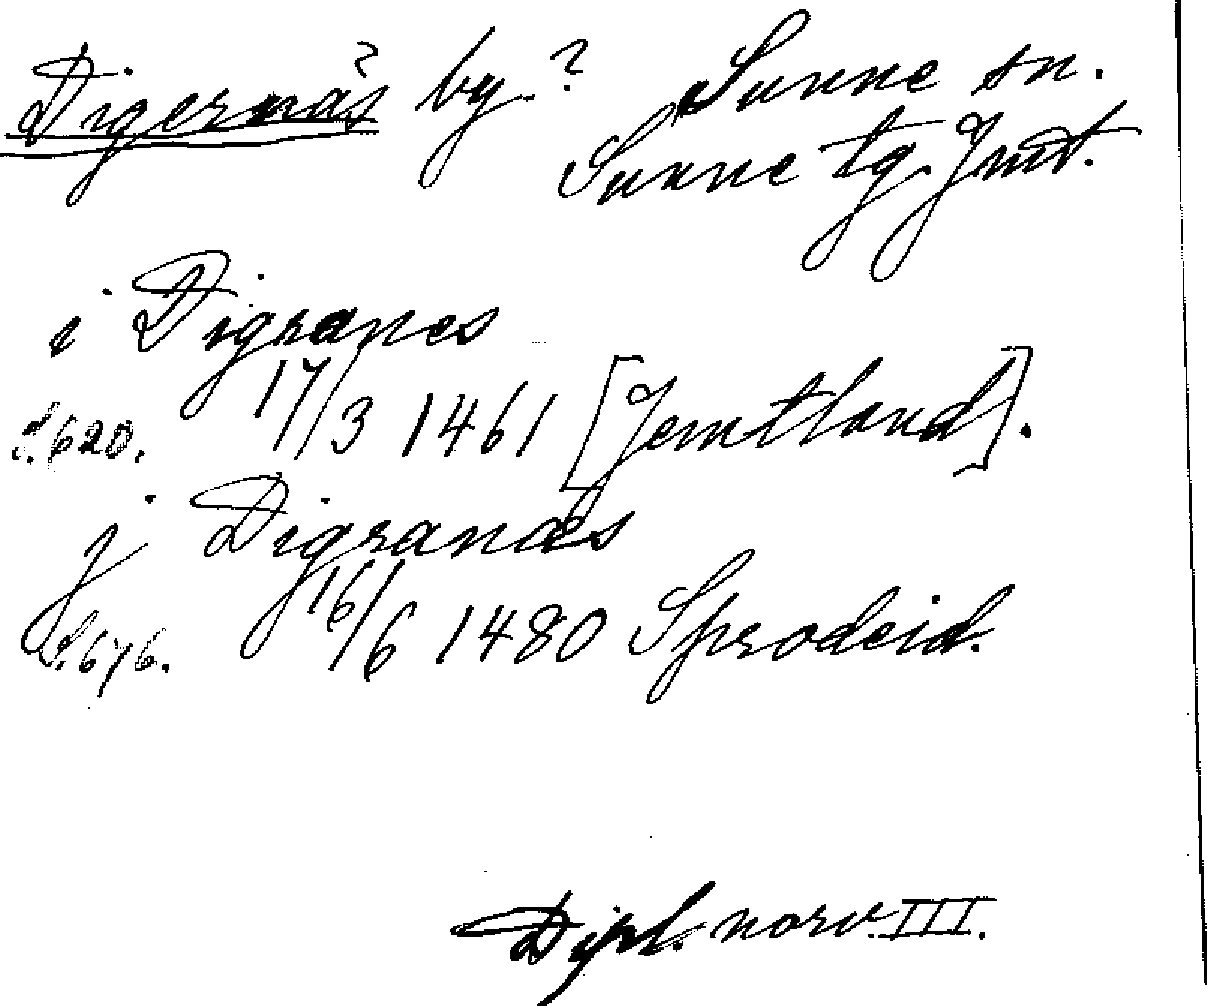 Digernäs by? Sunne sn.
Sunne tg. Jmt.
i Digranes
S. 620. 17/3 1461 [Jemtland].
j Digranæs
S. 676. 16/6 1480 Sprodeid.
Dipl. norv. III.